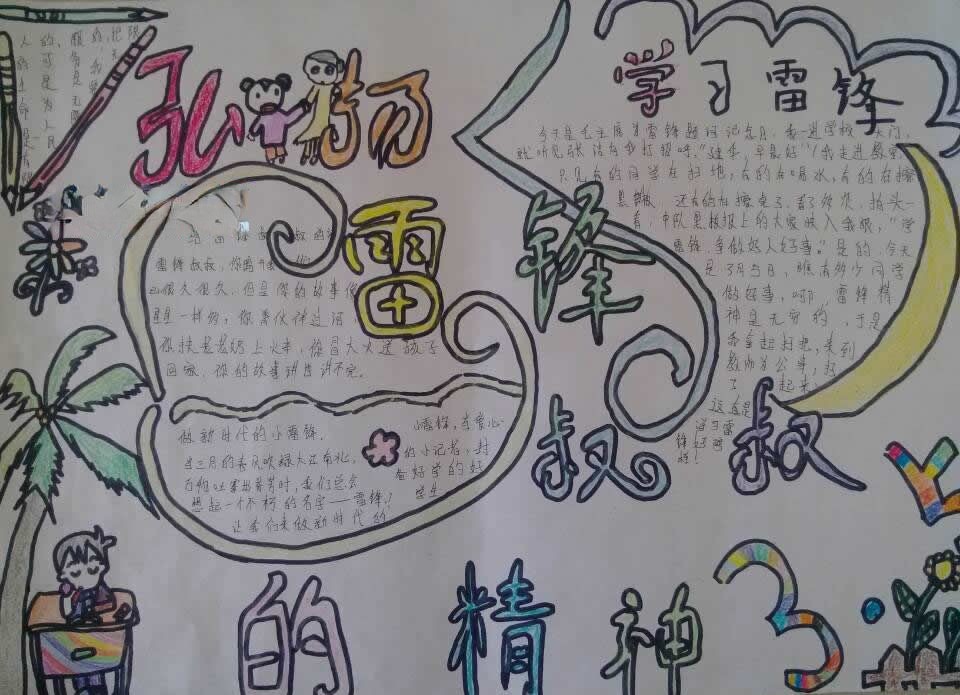 弘扬
雷锋
叔叔
的精神
学习雷锋
3
今天是毛主席为雷锋题词纪念日,我一进学校大门,
就听见张洁向我打招呼,“建乐,早晨好”!我走进教室,
只见有的同学在扫地,有的在喝水,有的在擦
黑板,还有的在擦桌子
看,中队黑板报上的大家映入我眼,“学
雷锋,争做好人好事。”是的,今天
是3月5日,瞧有多少同学
做好事,哪 雷锋精
神是无穷的,于是
我拿起扫把,来到
教师办公室,扫
了 起来
这真是
学习雷
锋好榜
样!
雷锋叔叔,你离开我们
已很久很久,但是你的故事像
星星一样多,你背伙伴过河
你扶老奶奶上火车,你冒大火送孩子
回家,你的故事讲也讲不完。
做新时代的小雷锋.
当三月的春风吹绿大江南北,
万物吐露出芬芳时,我们总会
想起一个不朽的名字——雷锋!
让我们来做新时代的
小雷锋,有爱心
的小记者,刻
苦好学的好
学生